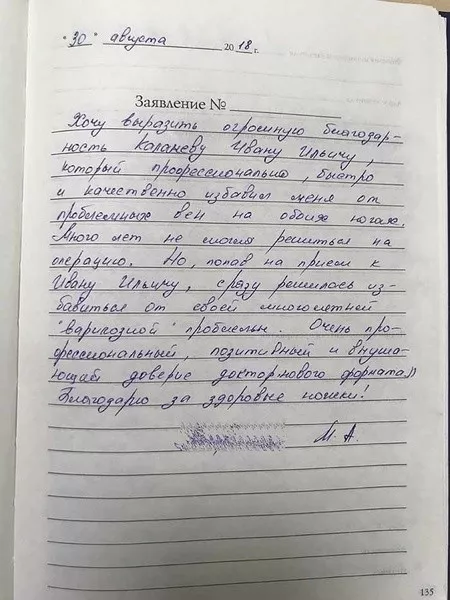 "30" августа 2018 г.
Заявление №
Хочу выразить огромную благодар-
ность Каланеву Ивану Ильичу,
который профессионально, быстро
и качественно избавил меня от
проблемных вен на обоих ногах.
Много лет не могла решиться на
операцию. Но, попав на прием к
Ивану Ильичу, сразу решилась из-
бавиться от своей многолетней
"варикозной" проблемы. Очень про-
фессиональный, позитивный и внуша-
ющий доверие доктор нового формата))
Благодарю за здоровые ножки!
М. А.
135